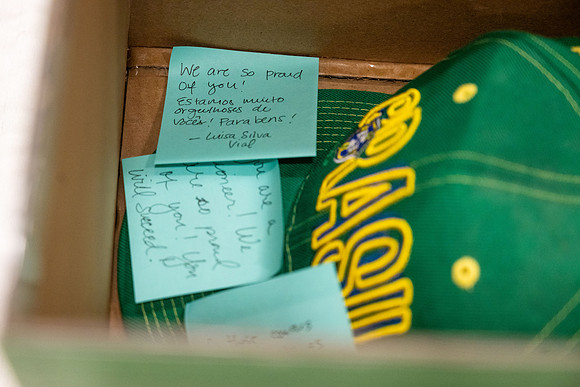 We are so proud
Of you!
Estamos muito
orgulhosos de
vocês! Parabens!
- Luisa Silva
Vial
You are a
pioneer! We
are so proud
of you! You
will succeed!
BRASIL